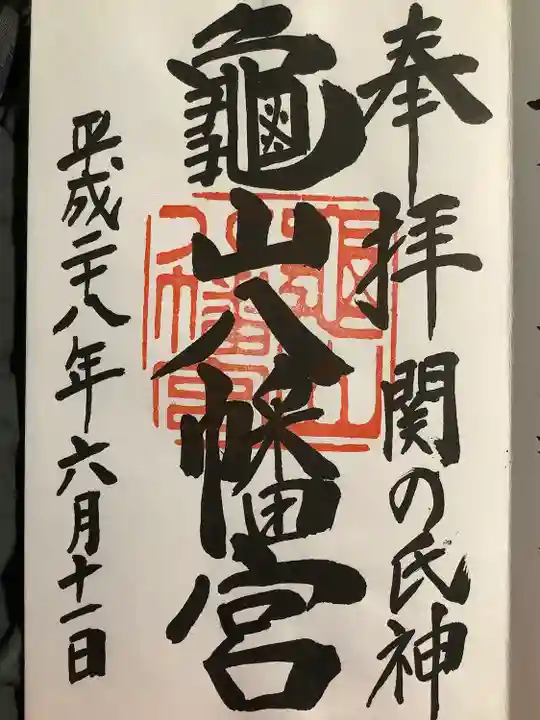 奉拝 関の氏神
龜山八幡宮
平成二十八年六月十一日
龜山八幡宮